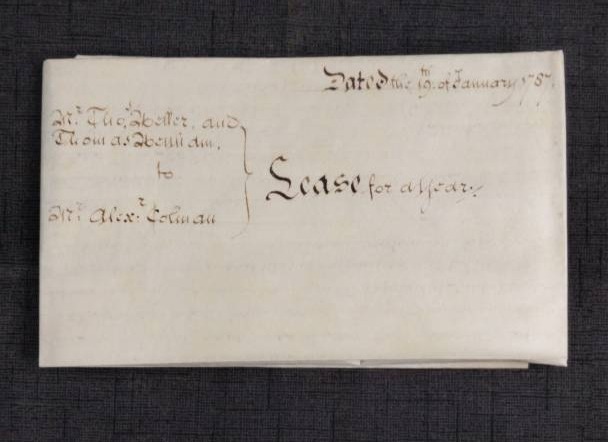 Dated the 19th. of January 1787.
Mr. Thos. Heller, and
Thomas Henham,
to
Mr. Alexr. Colman
Lease for a Year./